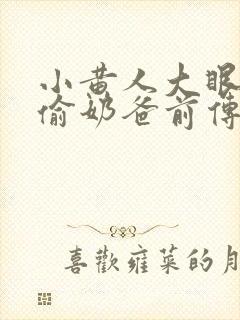 小黄人大眼
偷奶爸前傳
喜歡雍菜的月